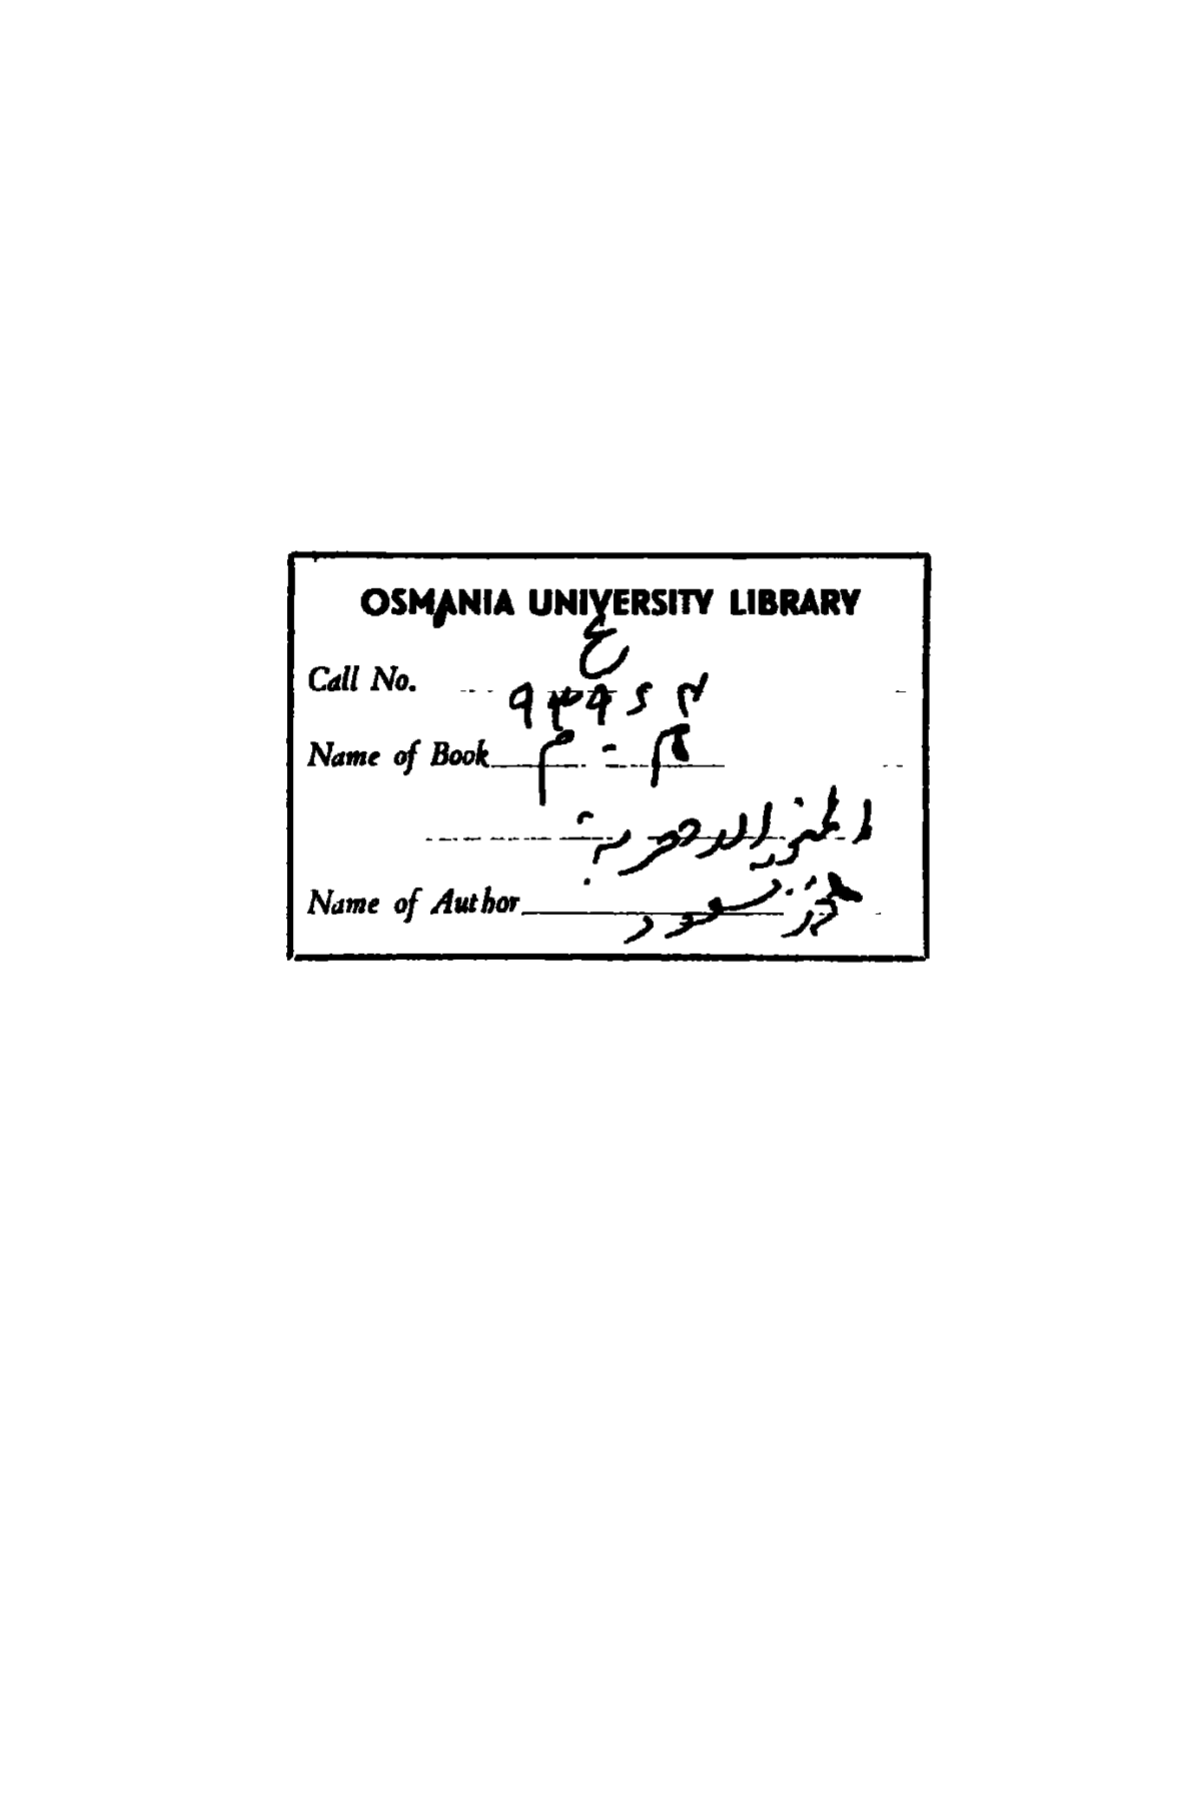 OSMANIA UNIVERSITY LIBRARY
ع
Call No. ۹۳۹۶۴
Name of Book م - م
Name of Author مسعود